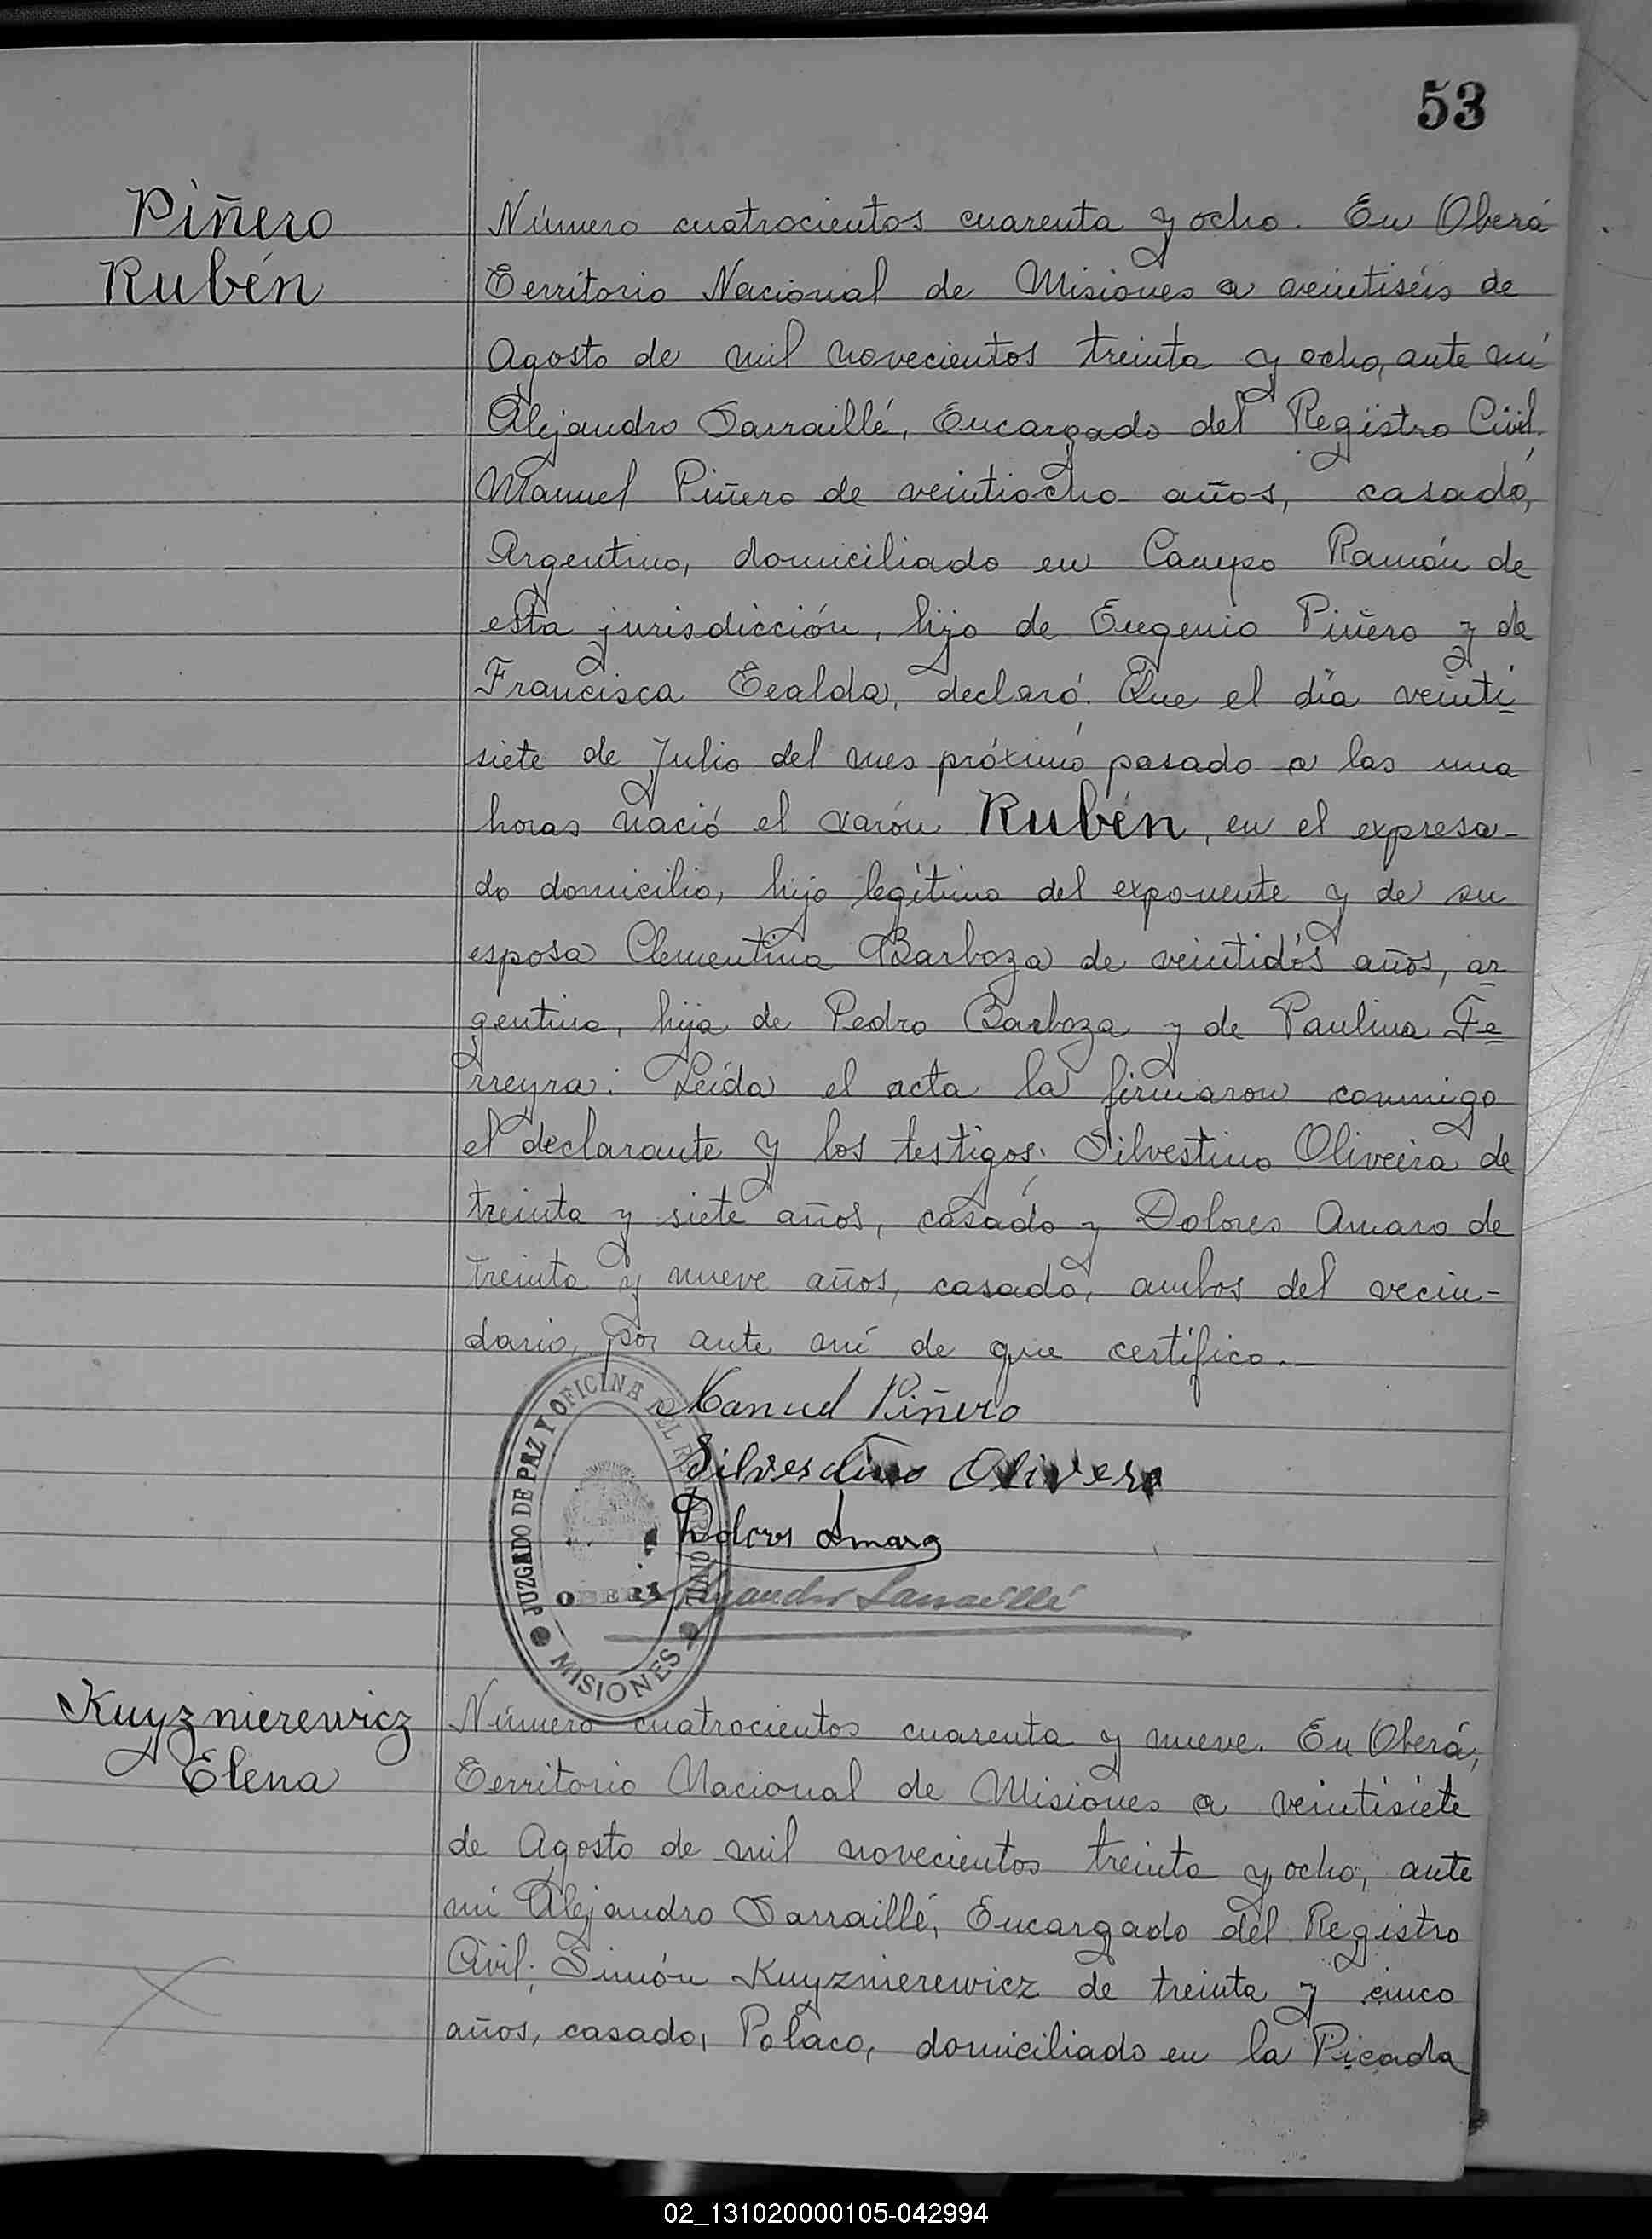 53
Piñero
Rubén
Número cuatrocientos cuarenta y ocho. En Oberá
Territorio Nacional de Misiones a veintiséis de
Agosto de mil novecientos treinta y ocho, ante mí
Alejandro Sarraillé, Encargado del Registro Civil.
Manuel Piñero de veintiocho años, casado,
Argentino, domiciliado en Campo Ramón de
esta jurisdicción, hijo de Eugenio Piñero y de
Francisca declaró: Que el día veinti
siete de Julio del mes próximo pasado a las una
horas nació el varón Rubén, en el expresa-
do domicilio, hijo legítimo del exponente y de su
esposa Clementina Barboza de veintidós años, ar
gentina, hija de Pedro Barboza y de Paulina Fe
rreyra: Leída el acta la firmaron conmigo
el declarante y los testigos: Silvestino Oliveira de
treinta y siete años, casado y Dolores Amaro de
treinta y nueve años, casado, ambos del vecin-
dario, por ante mí de que certifico.—
Manuel Piñero
Silvestino Olivera
Dolores Amaro
Alejandro Sarraillé
JUZGADO DE PAZ Y OFICINA DEL REGISTRO CIVIL
OBERA
MISIONES
Kuyznierewicz
Elena
Número cuatrocientos cuarenta y nueve. En Oberá,
Territorio Nacional de Misiones a veintisiete
de Agosto de mil novecientos treinta y ocho, ante
mí Alejandro Sarraillé, Encargado del Registro
Civil; Simón Kuyznierewicz de treinta y cinco
años, casado, Polaco, domiciliado en la Picada
02_131020000105-042994